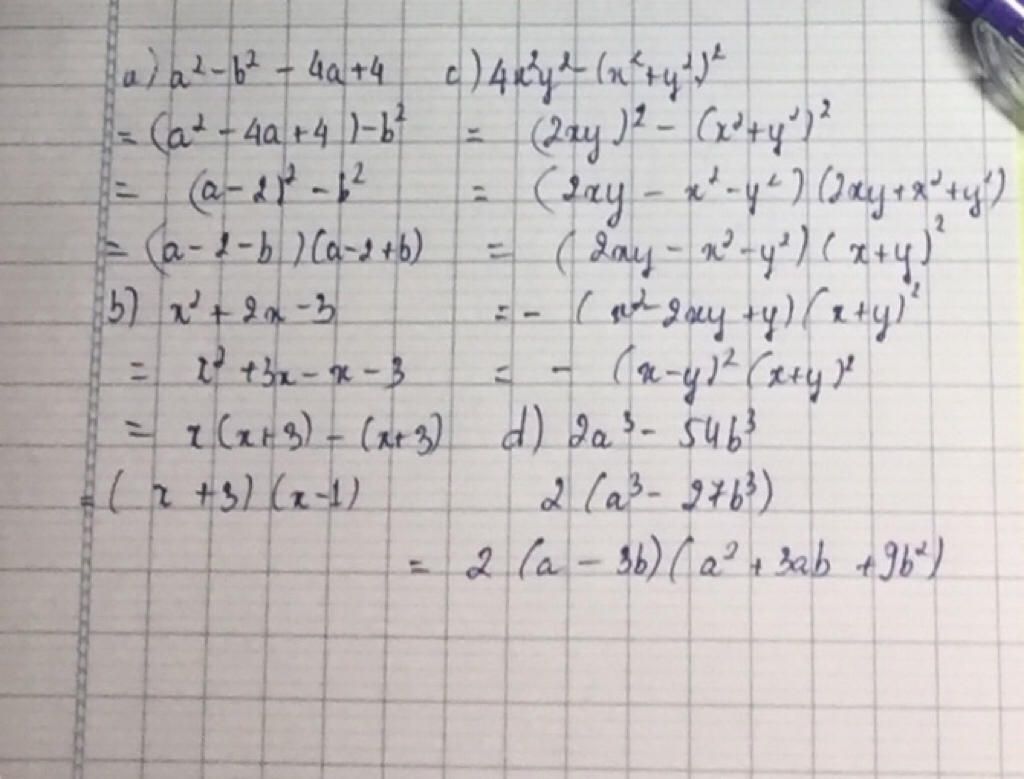 a) a² - b² - 4a + 4
= (a² - 4a + 4) - b²
= (a - 2)² - b²
= (a - 2 - b)(a - 2 + b)
b) x² + 2x - 3
= x² + 3x - x - 3
= x(x + 3) - (x + 3)
= (x + 3)(x - 1)
c) 4x²y² - (x² + y²)²
= (2xy)² - (x² + y²)²
= (2xy - x² - y²)(2xy + x² + y²)
= (2xy - x² - y²)(x + y)²
= - (x² - 2xy + y)(x + y)²
= - (x - y)² (x + y)²
d) 2a³ - 54b³
2 (a³ - 27b³)
= 2 (a - 3b)(a² + 3ab + 9b²)